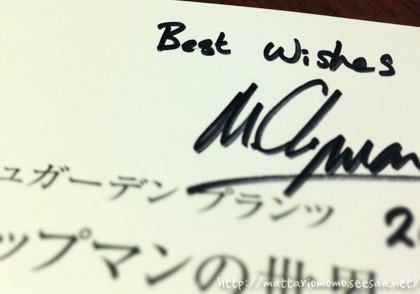 Best Wishes
ュガーデン プランツ
ップマンの世界
http://mattariomomo.seesaa.net/